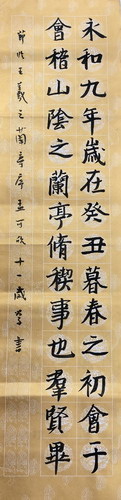 永和九年歲在癸丑暮春之初會于
會稽山陰之蘭亭脩禊事也羣賢畢
節臨王羲之蘭亭序孟可欣十一歲學書